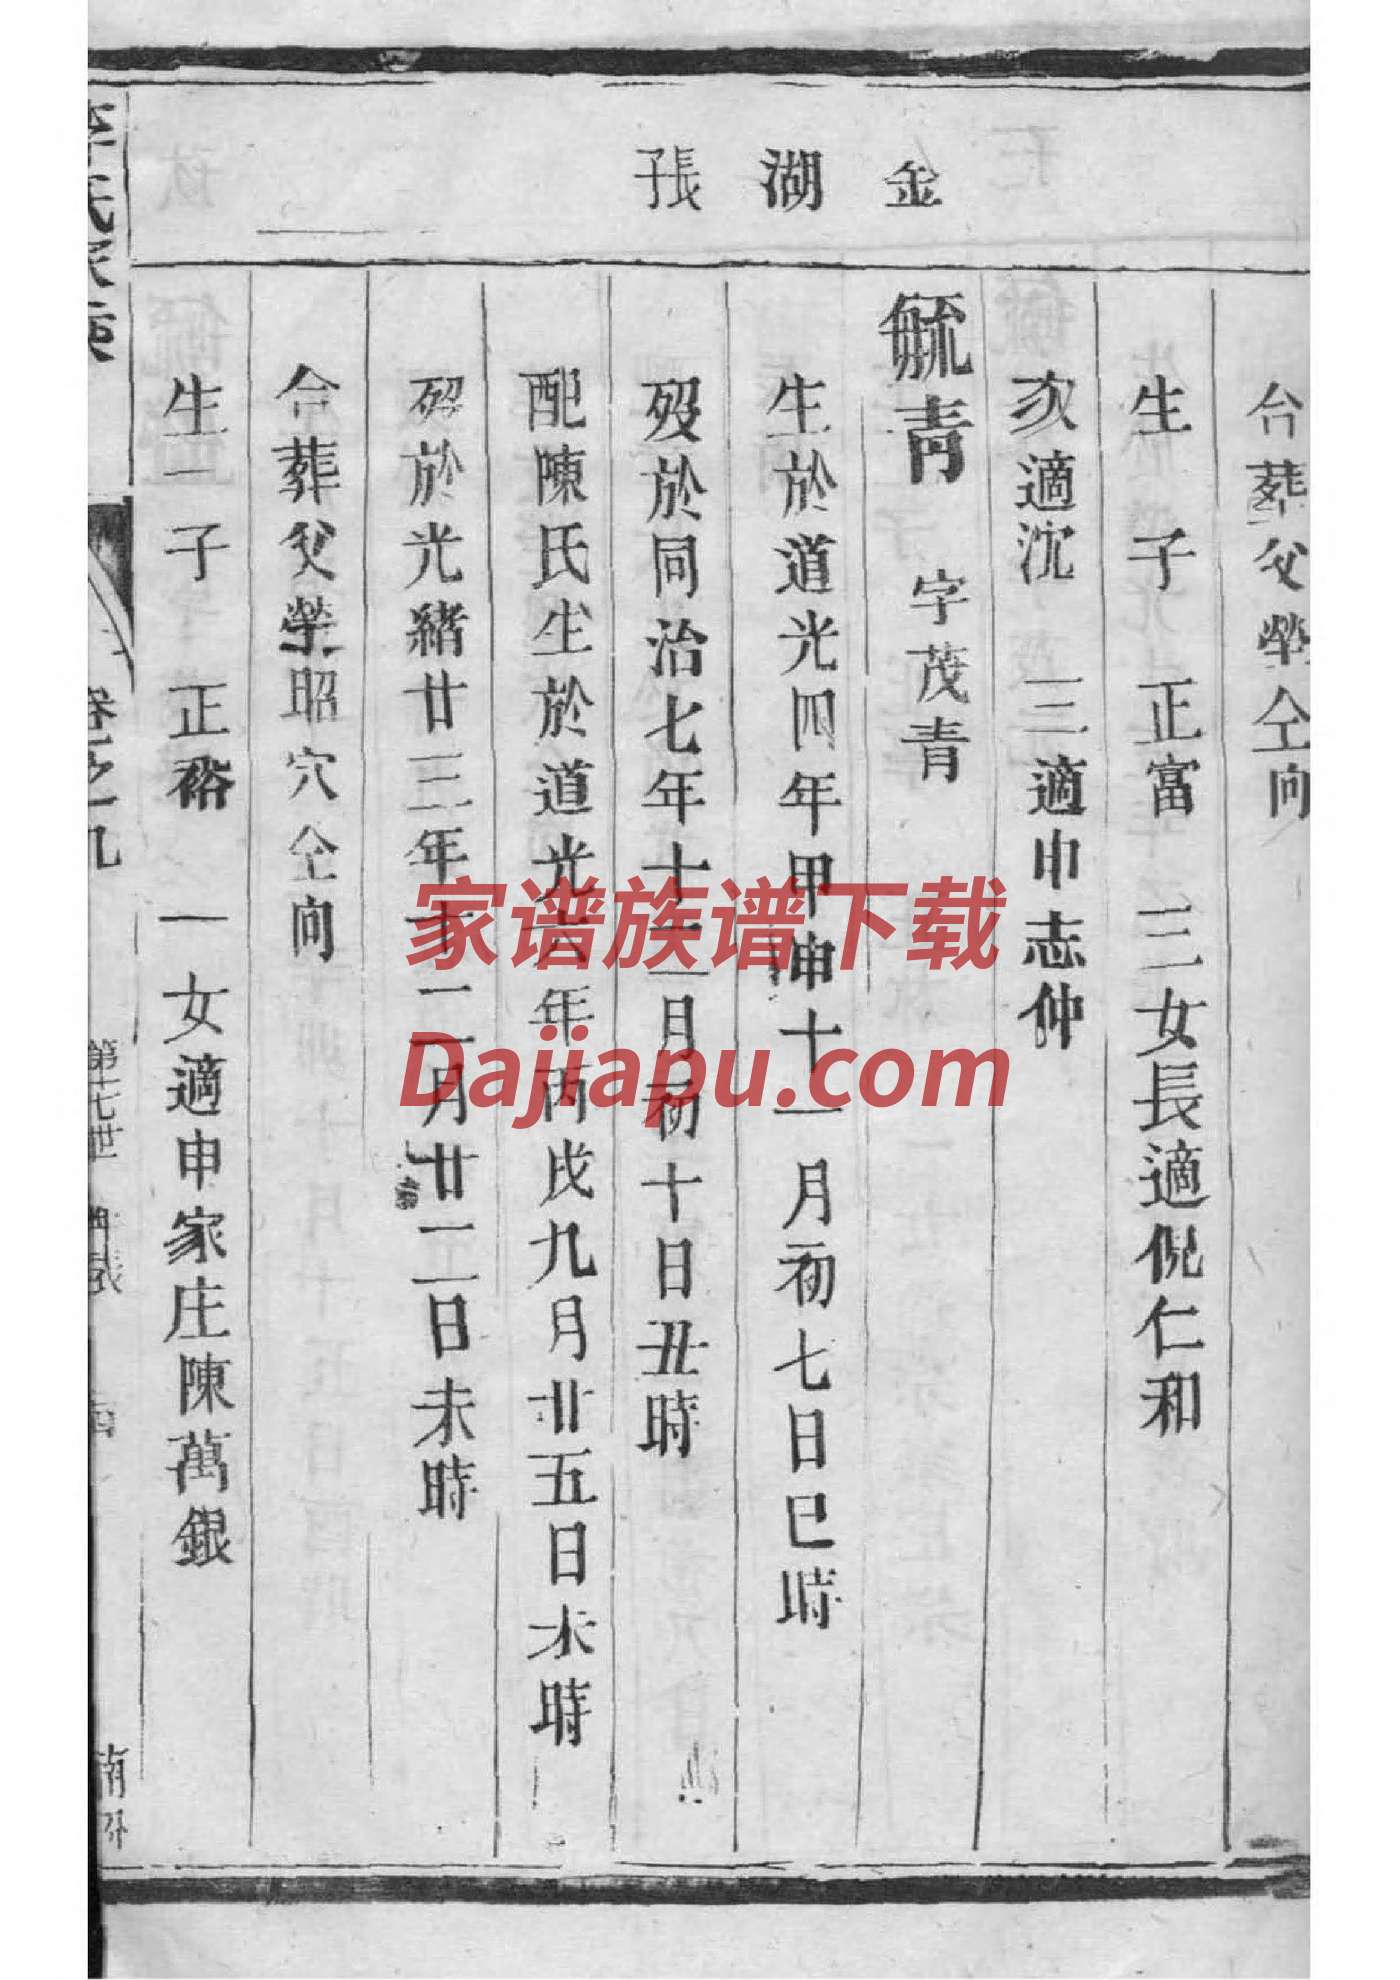 金湖張
合葬父榮仝向
生子正富 三女長適倪仁和
次適沈 三適申志仲
毓青 字茂青
生於道光四年甲申十一月初七日巳時
歿於同治七年十二月初十日丑時
配陳氏生於道光六年丙戌九月廿五日未時
歿於光緒廿三年十二月廿二日未時
合葬父榮昭穴仝向
生一子正裕 一女適申家庄陳萬銀
卷之九
第十七世
南外
家谱族谱下载
Dajiapu.com